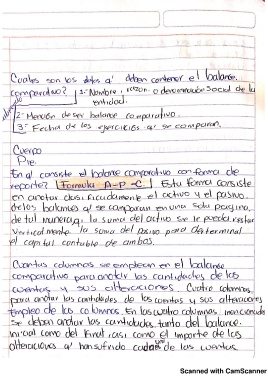 Cuales son los datos q' deben contener el balance
comparativo? 1.- Nombre, razon o denominación social de la
entidad.
2.- Mención de ser balance comparativo.
3.- Fecha de los ejercicios q' se comparan.
Cuerpo
Pre.
En q' consiste el balance comparativo con forma de
reporte? Formula A-P=C. Esta forma consiste
en anotar clasificadamente el activo y el pasivo
de los balances q' se comparan en una sola pagina,
de tal manera q' la suma del activo se le pueda restar
verticalmente la suma del pasivo para determinar
el capital contable de ambos.
Cuantas columnas se emplean en el balance
comparativo para anotar las cantidades de las
cuentas y sus alteraciones. Cuatro columnas,
para anotar las cantidades de las cuentas y sus alteraciones
Empleo de las columnas. En las cuatro columnas mencionadas
se deben anotar las cantidades, tanto del balance
inicial como del final, asi como el importe de las
alteraciones q' han sufrido cada de las cuentas
Scanned with CamScanner